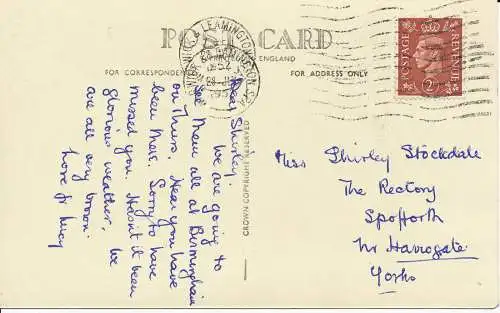 POST CARD
ENGLAND
FOR CORRESPONDENCE
FOR ADDRESS ONLY
LEAMINGTON SPA
POSTAGE
REVENUE
2D
CROWN COPYRIGHT RESERVED
Dear Shirley.
We are going to
see Mem all at Birmingham
on Thurs. Hear you have
been Meis. Sorry to have
missed you. Hasn't it been
glorious weather, we
are all very brown.
Love fr Lucy
Miss Shirley Stockdale
The Rectory
Spofforth
Nr Harrogate
Yorks